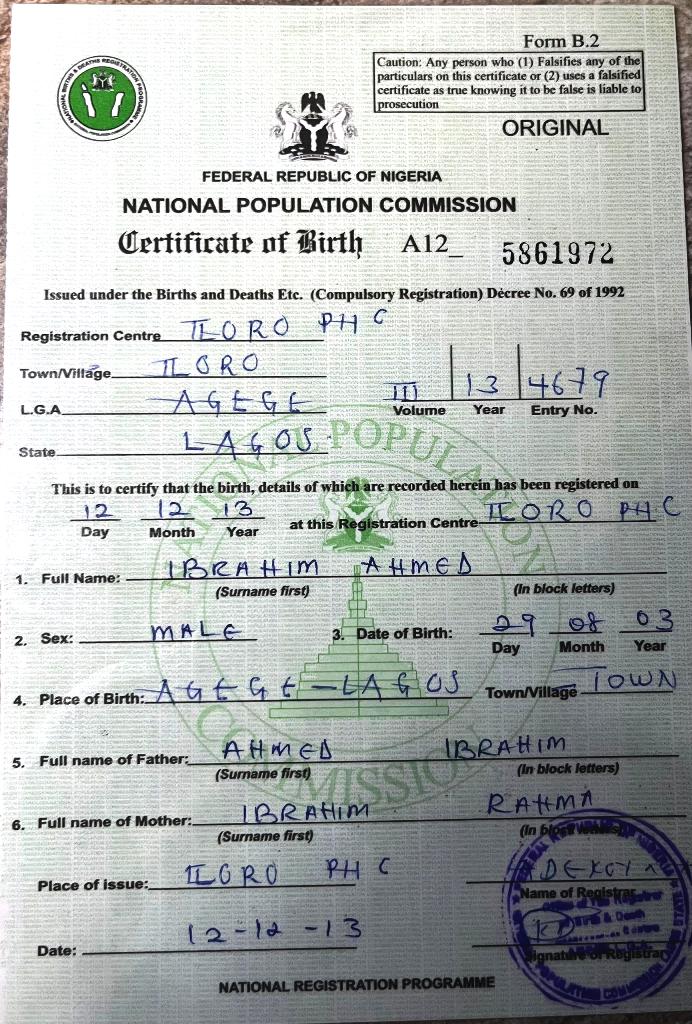 Form B.2
Caution: Any person who (1) Falsifies any of the
particulars on this certificate or (2) uses a falsified
certificate as true knowing it to be false is liable to
prosecution
ORIGINAL
NATIONAL BIRTHS & DEATHS REGISTRATION PROGRAMME
FEDERAL REPUBLIC OF NIGERIA
NATIONAL POPULATION COMMISSION
Certificate of Birth A12_ 5861972
Issued under the Births and Deaths Etc. (Compulsory Registration) Decree No. 69 of 1992
Registration Centre ILORO PHC
Town/Village ILORO
L.G.A AGEGE
III 13 4679
Volume Year Entry No.
State LAGOS
This is to certify that the birth, details of which are recorded herein has been registered on
12 12 13 at this Registration Centre ILORO PHC
Day Month Year
1. Full Name: IBRAHIM AHMED
(Surname first) (In block letters)
2. Sex: MALE 3. Date of Birth: 29 08 03
Day Month Year
4. Place of Birth: AGEGE-LAGOS Town/Village TOWN
5. Full name of Father: AHMED IBRAHIM
(Surname first) (In block letters)
6. Full name of Mother: IBRAHIM RAHMA
(Surname first) (In block letters)
Place of issue: ILORO PHC
Name of Registrar
Date: 12-12-13
Signature of Registrar
NATIONAL REGISTRATION PROGRAMME
NATIONAL POPULATION COMMISSION